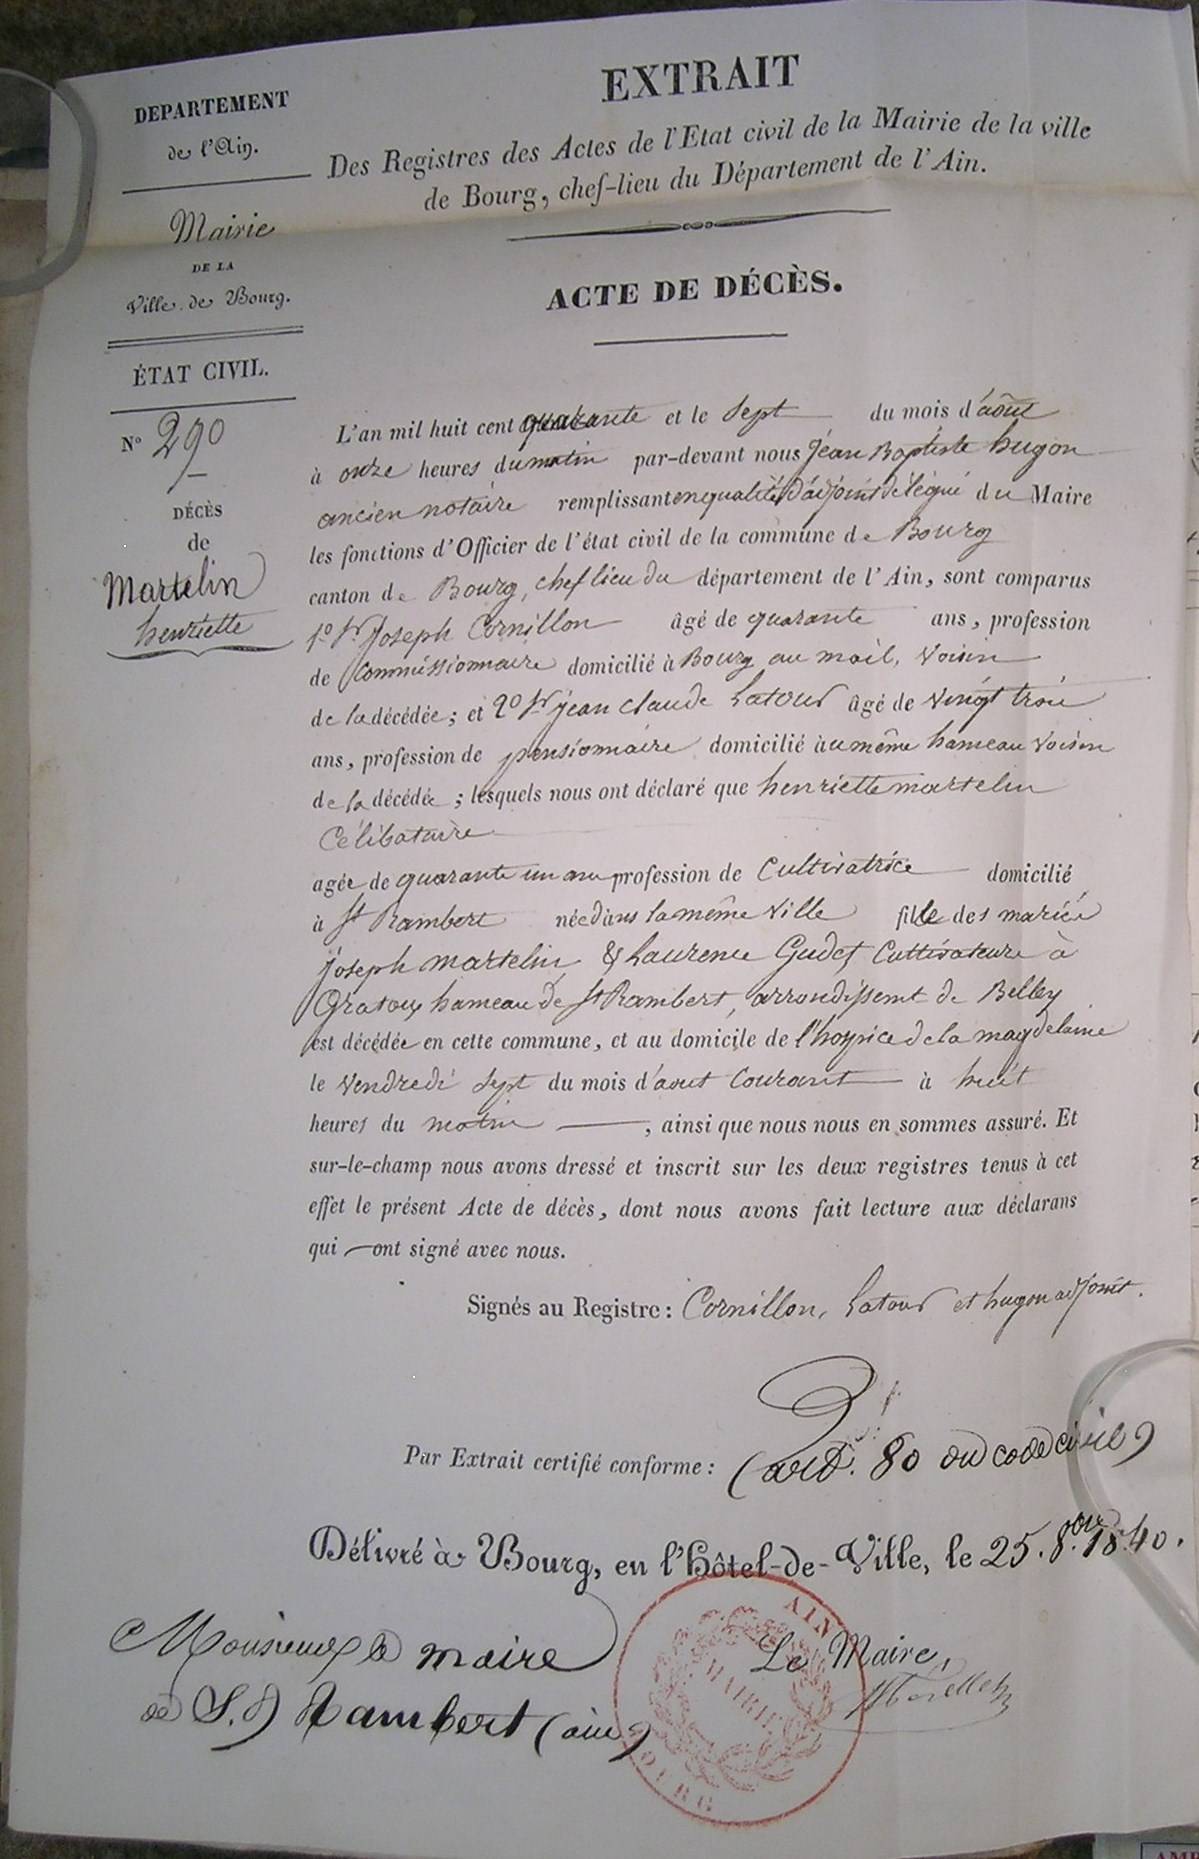 EXTRAIT
Des Registres des Actes de l'Etat civil de la Mairie de la ville
de Bourg, chef-lieu du Département de l'Ain.
ACTE DE DÉCÈS.
DEPARTEMENT
de l'Ain.
Mairie
DE LA
Ville de Bourg.
ÉTAT CIVIL.
N° 290
DÉCÈS
de
Martelin
henriette
L'an mil huit cent quarante et le Sept du mois d'août
à onze heures du matin par-devant nous Jean Baptiste hugon
ancien notaire remplissant en qualité d'adjoint délégué du Maire
les fonctions d'Officier de l'état civil de la commune de Bourg
canton de Bourg, chef lieu du département de l'Ain, sont comparus
1° Sr Joseph Cornillon âgé de quarante ans, profession
de Commissionnaire domicilié à Bourg au mail, voisin
de la décédée; et 2° Sr jean claude Latour âgé de vingt trois
ans, profession de pensionnaire domicilié au même hameau voisin
de la décédée; lesquels nous ont déclaré que henriette martelin
Célibataire
agée de quarante un ans profession de Cultivatrice domicilié
à St Rambert née dans la même ville fille des mariés
Joseph martelin & Laurence Gudet Cultivateurs à
Gratoux hameau de St Rambert, arrondissemt de Belley
est décédée en cette commune, et au domicile de l'hospice de la magdelaine
le Vendredi Sept du mois d'aout Courant à huit
heures du matin, ainsi que nous nous en sommes assuré. Et
sur-le-champ nous avons dressé et inscrit sur les deux registres tenus à cet
effet le présent Acte de décès, dont nous avons fait lecture aux déclarans
qui ont signé avec nous.
Signés au Registre: Cornillon, Latour et hugon adjoint.
Par Extrait certifié conforme: (art. 80 du code civil)
Délivré à Bourg, en l'Hôtel-de-Ville, le 25. 8bre 1840.
Monsieur le maire
de St Rambert (ain)
Le Maire,
AIN
MAIRIE
BOURG